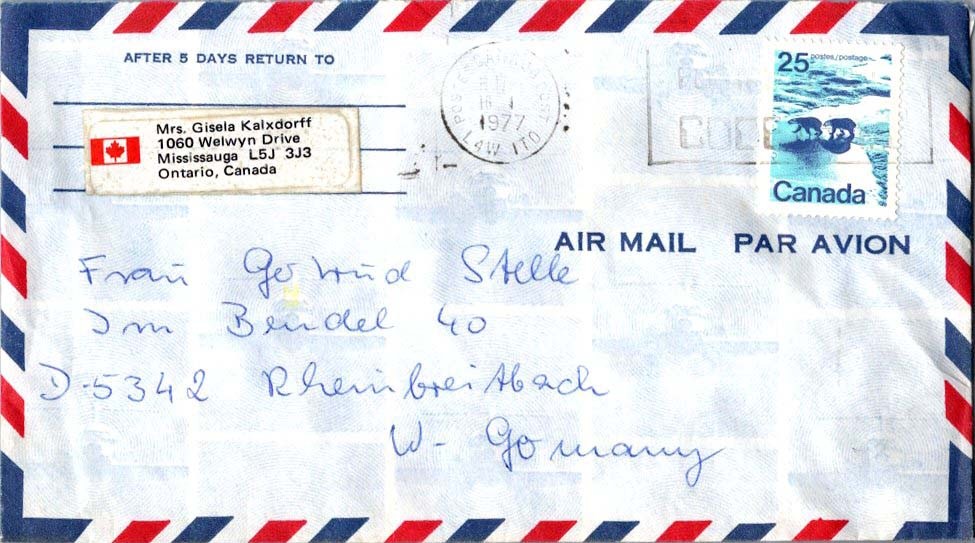 AFTER 5 DAYS RETURN TO
Mrs. Gisela Kalxdorff
1060 Welwyn Drive
Mississauga L5J 3J3
Ontario, Canada
1977
25 postes/postage
Canada
AIR MAIL PAR AVION
Frau Gertrud Stelle
Im Bendel 40
D-5342 Rheinbreitbach
W-Germany